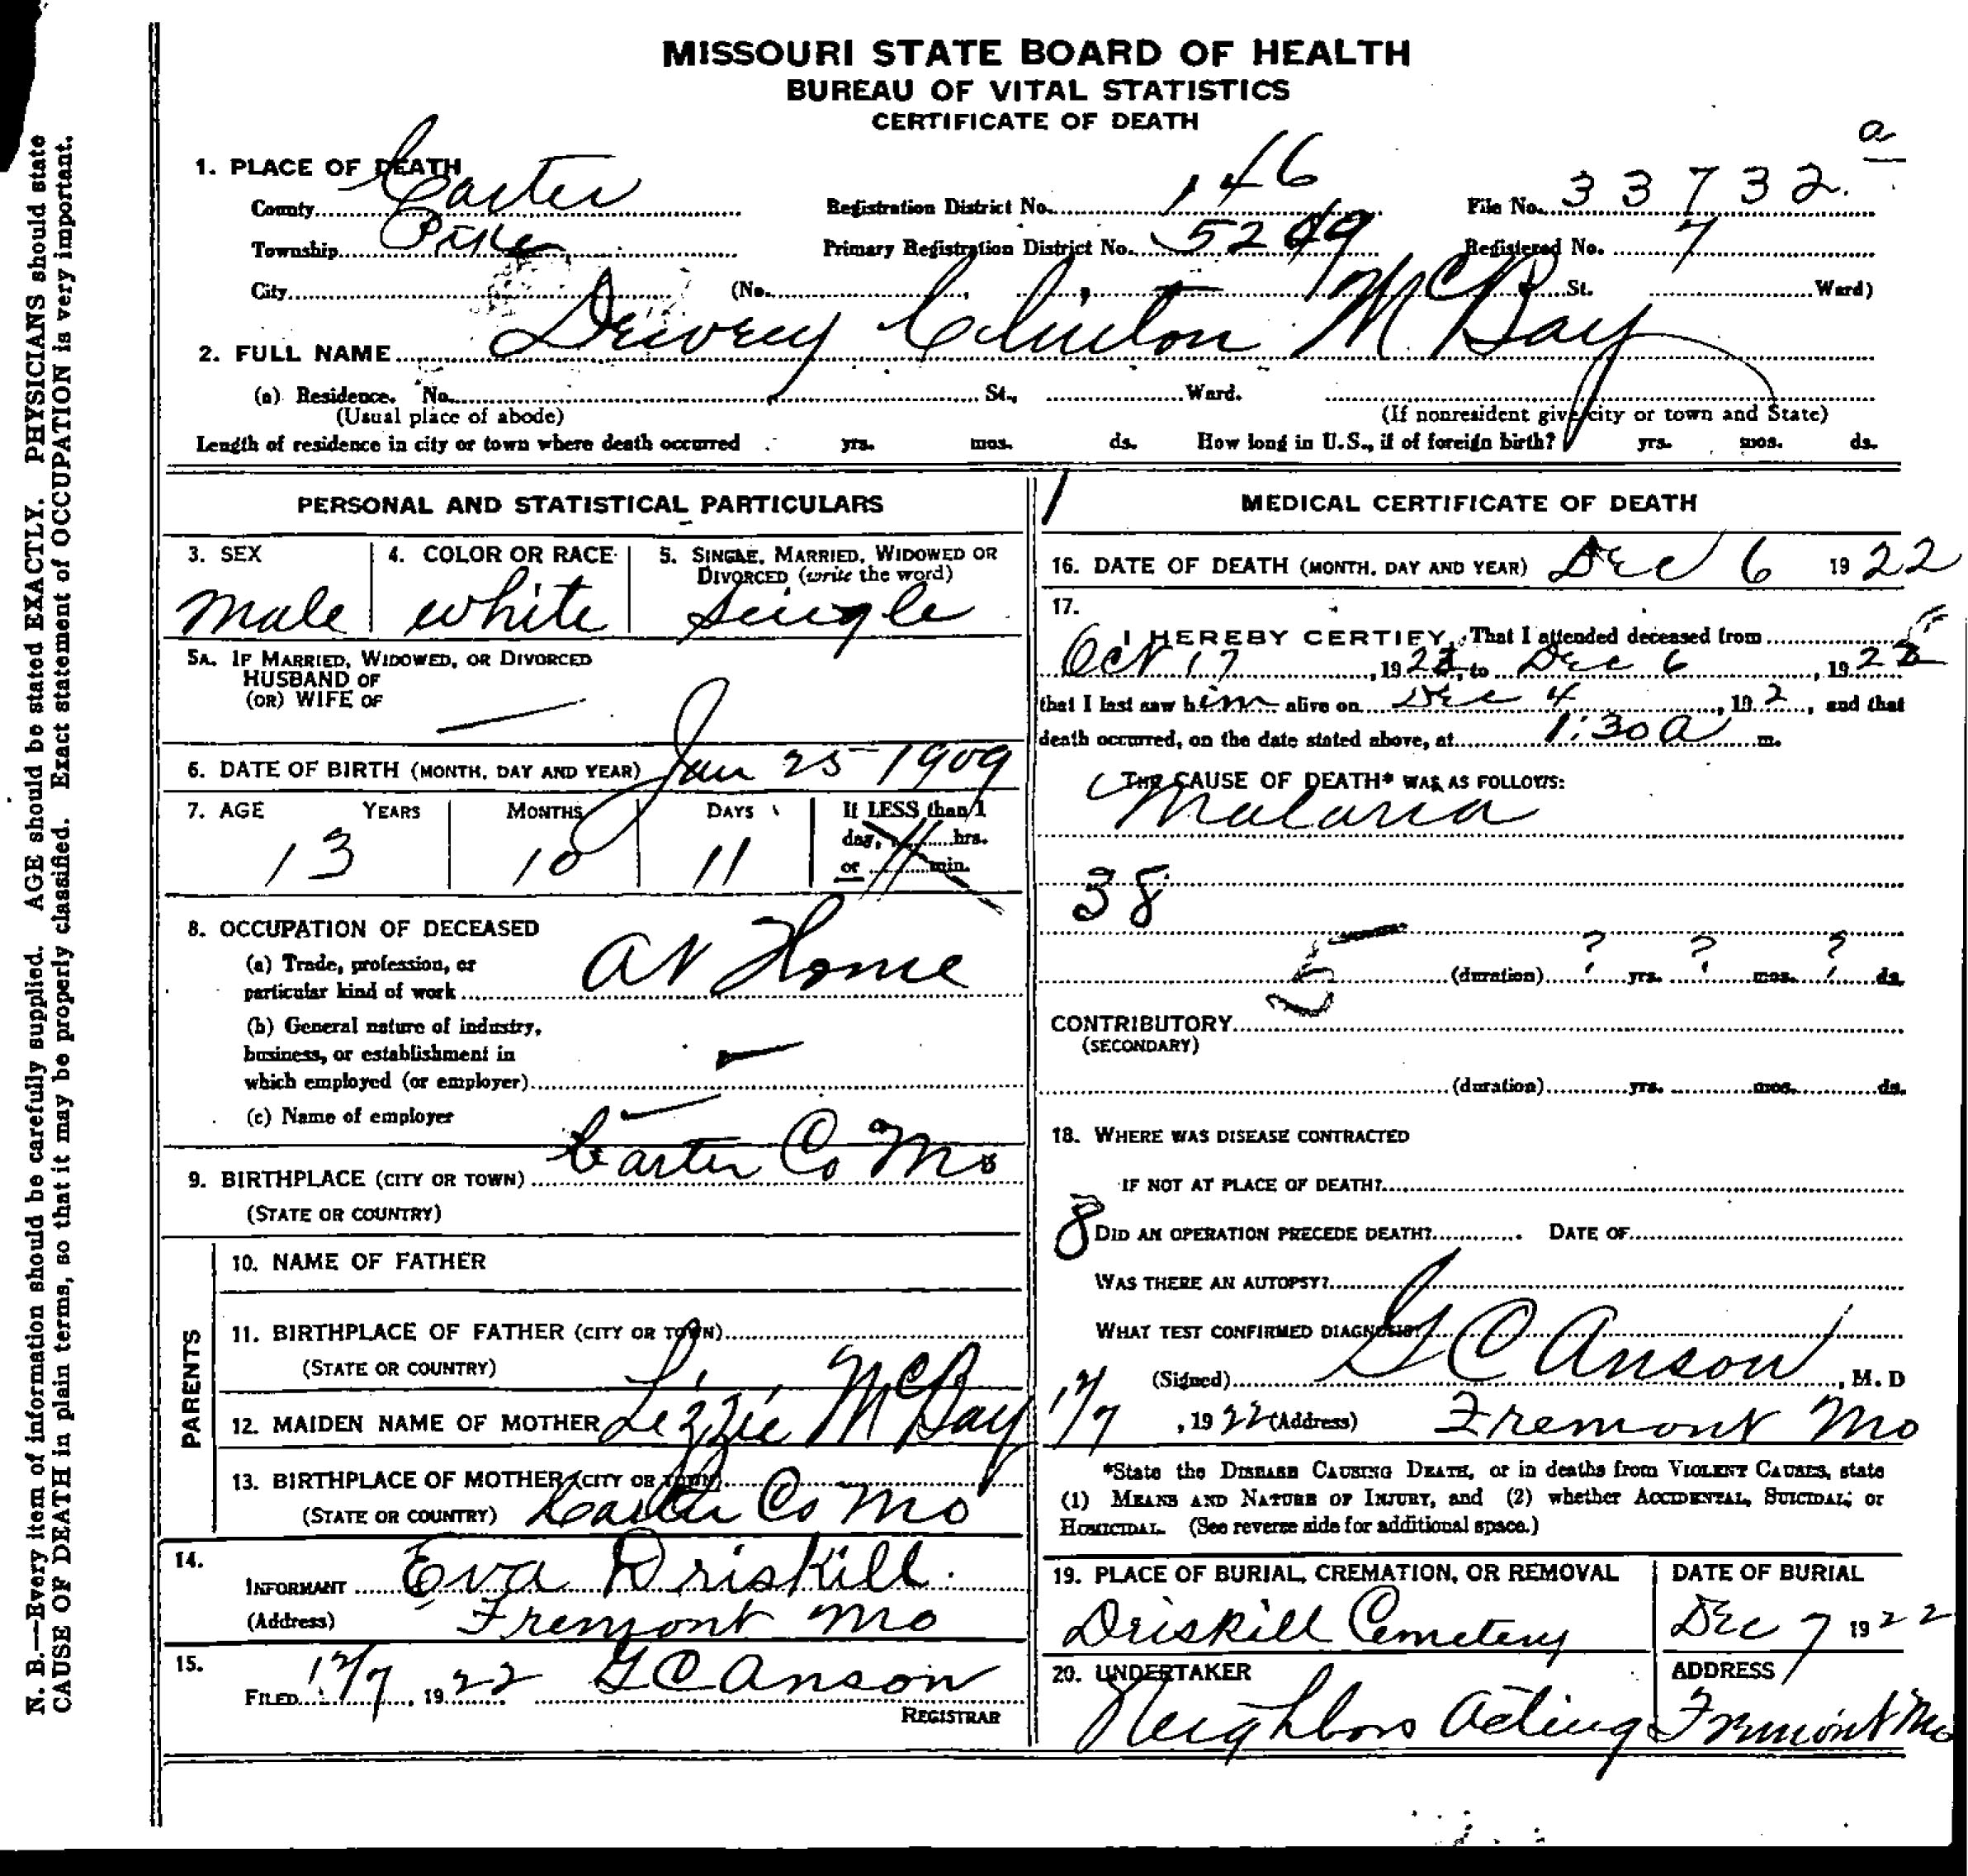 MISSOURI STATE BOARD OF HEALTH
BUREAU OF VITAL STATISTICS
CERTIFICATE OF DEATH
a
1. PLACE OF DEATH
County Carter Registration District No. 146 File No. 33732
Township Pike Primary Registration District No. 5249 Registered No. 7
City (No. St. Ward)
2. FULL NAME Dewey Clinton McBay
(a) Residence. No. St., Ward.
(Usual place of abode) (If nonresident give city or town and State)
Length of residence in city or town where death occurred yrs. mos. ds. How long in U.S., if of foreign birth? yrs. mos. ds.
PERSONAL AND STATISTICAL PARTICULARS
3. SEX 4. COLOR OR RACE 5. SINGLE, MARRIED, WIDOWED OR
DIVORCED (write the word)
male white Single
5A. IF MARRIED, WIDOWED, OR DIVORCED
HUSBAND OF
(OR) WIFE OF
6. DATE OF BIRTH (MONTH, DAY AND YEAR) Jan 25 1909
7. AGE YEARS MONTHS DAYS If LESS than 1
day, hrs.
or min.
13 10 11
8. OCCUPATION OF DECEASED
(a) Trade, profession, or
particular kind of work At Home
(b) General nature of industry,
business, or establishment in
which employed (or employer)
(c) Name of employer
9. BIRTHPLACE (CITY OR TOWN) Carter Co Mo
(STATE OR COUNTRY)
PARENTS
10. NAME OF FATHER
11. BIRTHPLACE OF FATHER (CITY OR TOWN)
(STATE OR COUNTRY)
12. MAIDEN NAME OF MOTHER Lizzie McBay
13. BIRTHPLACE OF MOTHER (CITY OR TOWN)
(STATE OR COUNTRY) Carter Co Mo
14.
INFORMANT Eva Driskill
(Address) Fremont Mo
15.
FILED 12/7, 1922 G C Anson
REGISTRAR
1
MEDICAL CERTIFICATE OF DEATH
16. DATE OF DEATH (MONTH, DAY AND YEAR) Dec 6 1922
17.
I HEREBY CERTIFY, That I attended deceased from
Oct 17, 1922, to Dec 6, 1922
that I last saw him alive on Dec 4, 192, and that
death occurred, on the date stated above, at 1:30 a m.
THE CAUSE OF DEATH* WAS AS FOLLOWS:
Malaria
38
5 (duration) ? yrs. ? mos. ? ds.
CONTRIBUTORY
(SECONDARY)
(duration) yrs. mos. ds.
18. WHERE WAS DISEASE CONTRACTED
IF NOT AT PLACE OF DEATH?
8 DID AN OPERATION PRECEDE DEATH? DATE OF
WAS THERE AN AUTOPSY?
WHAT TEST CONFIRMED DIAGNOSIS?
(Signed) G C Anson, M. D
12/7, 1922 (Address) Fremont Mo
*State the DISEASE CAUSING DEATH, or in deaths from VIOLENT CAUSES, state
(1) MEANS AND NATURE OF INJURY, and (2) whether ACCIDENTAL, SUICIDAL, or
HOMICIDAL. (See reverse side for additional space.)
19. PLACE OF BURIAL, CREMATION, OR REMOVAL DATE OF BURIAL
Driskill Cemetery Dec 7 1922
20. UNDERTAKER ADDRESS
Neighbors Acting Fremont Mo
N. B.—Every item of information should be carefully supplied. AGE should be stated EXACTLY. PHYSICIANS should state
CAUSE OF DEATH in plain terms, so that it may be properly classified. Exact statement of OCCUPATION is very important.